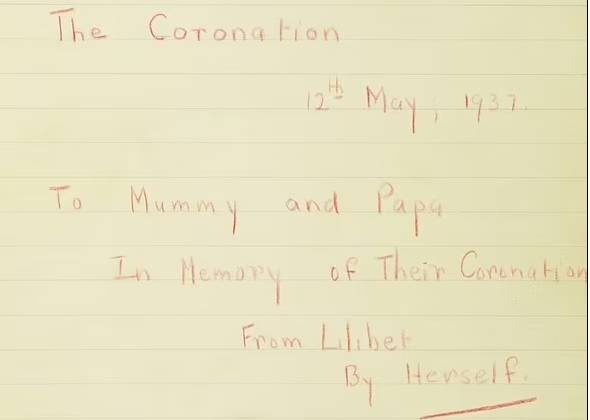 The Coronation
12th May, 1937.
To Mummy and Papa
In Memory of Their Coronation
From Lilibet
By Herself.